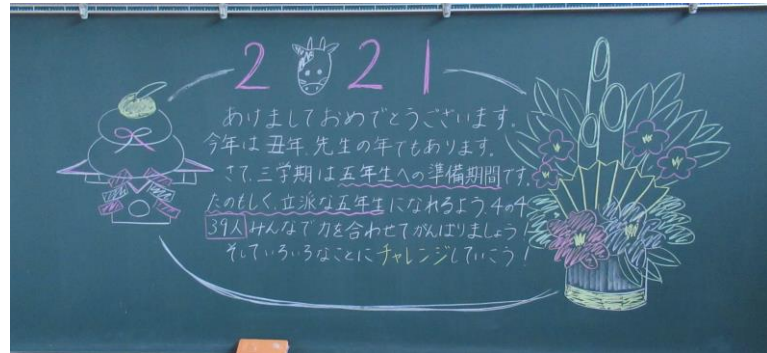 2021
あけましておめでとうございます。
今年は丑年、先生の年でもあります。
さて、三学期は五年生への準備期間です。
たのもしく、立派な五年生になれるよう、4の4
39人みんなで力を合わせてがんばりましょう！
そしていろいろなことにチャレンジしていこう！